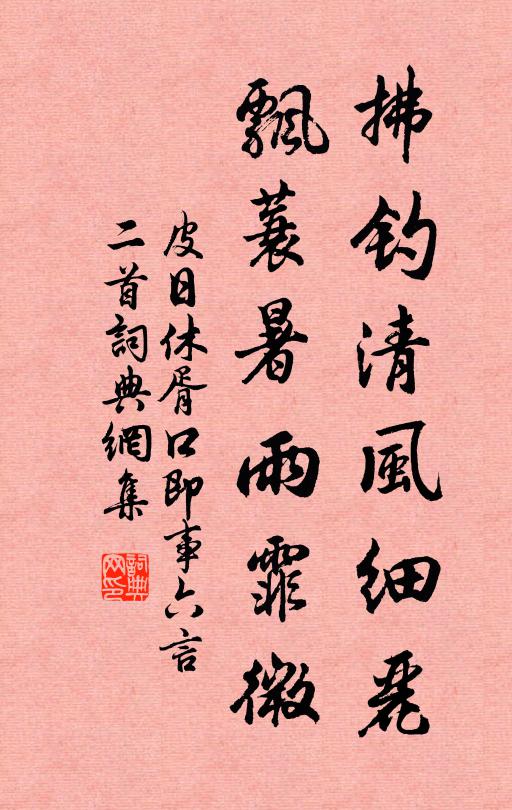 拂钓清風细麗
飄蓑暑雨霏微
皮日休胥口即事六言
二首詞典網集
詞典网印